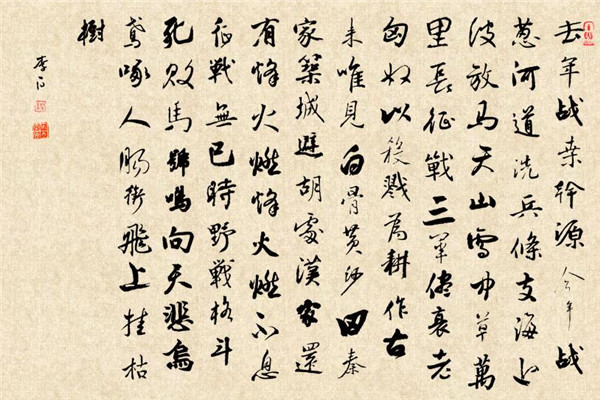 去年战桑幹源今年战
葱河道洗兵條支海上
波放马天山雪中草萬
里長征戰三军儘衰老
匈奴以殺戮為耕作古
来唯見白骨黄沙田秦
家築城避胡處漢家還
有烽火燃烽火燃不息
征戰無已時野戰格斗
死敗馬號鳴向天悲烏
鸢啄人腸銜飛上挂枯
樹
李白